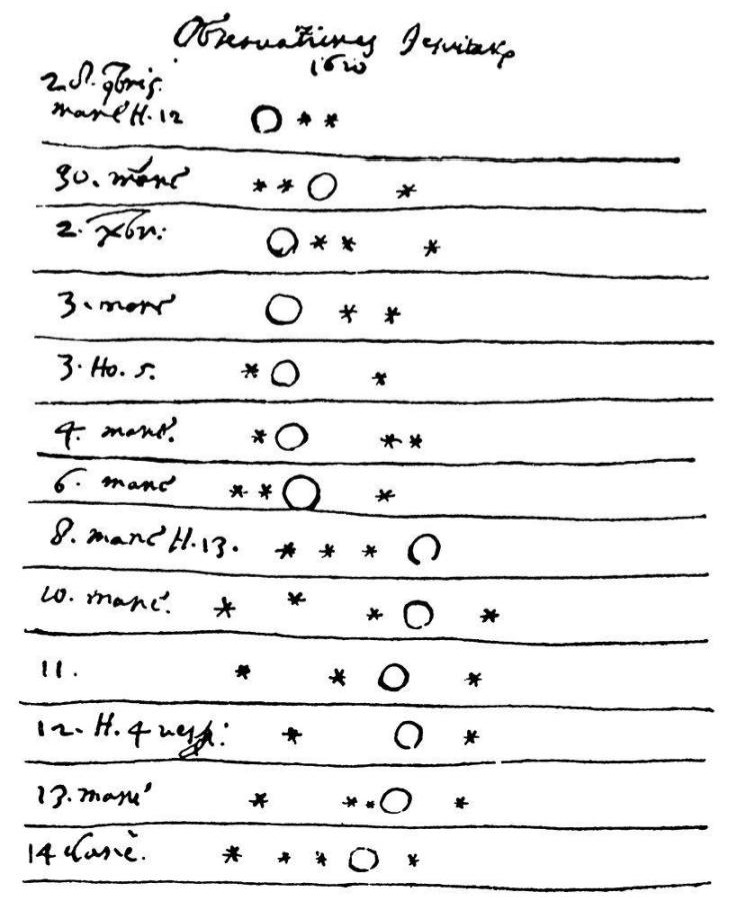 Observationes Jesuitarum
1610
2. S. 9bris.
mane H. 12
30. mane
2. Xbr:
3. mane
3. Ho. 5.
4. mane.
6. mane
8. mane H. 13.
10. mane.
11.
12. H. 4 vesp:
13. mane
14 mane.